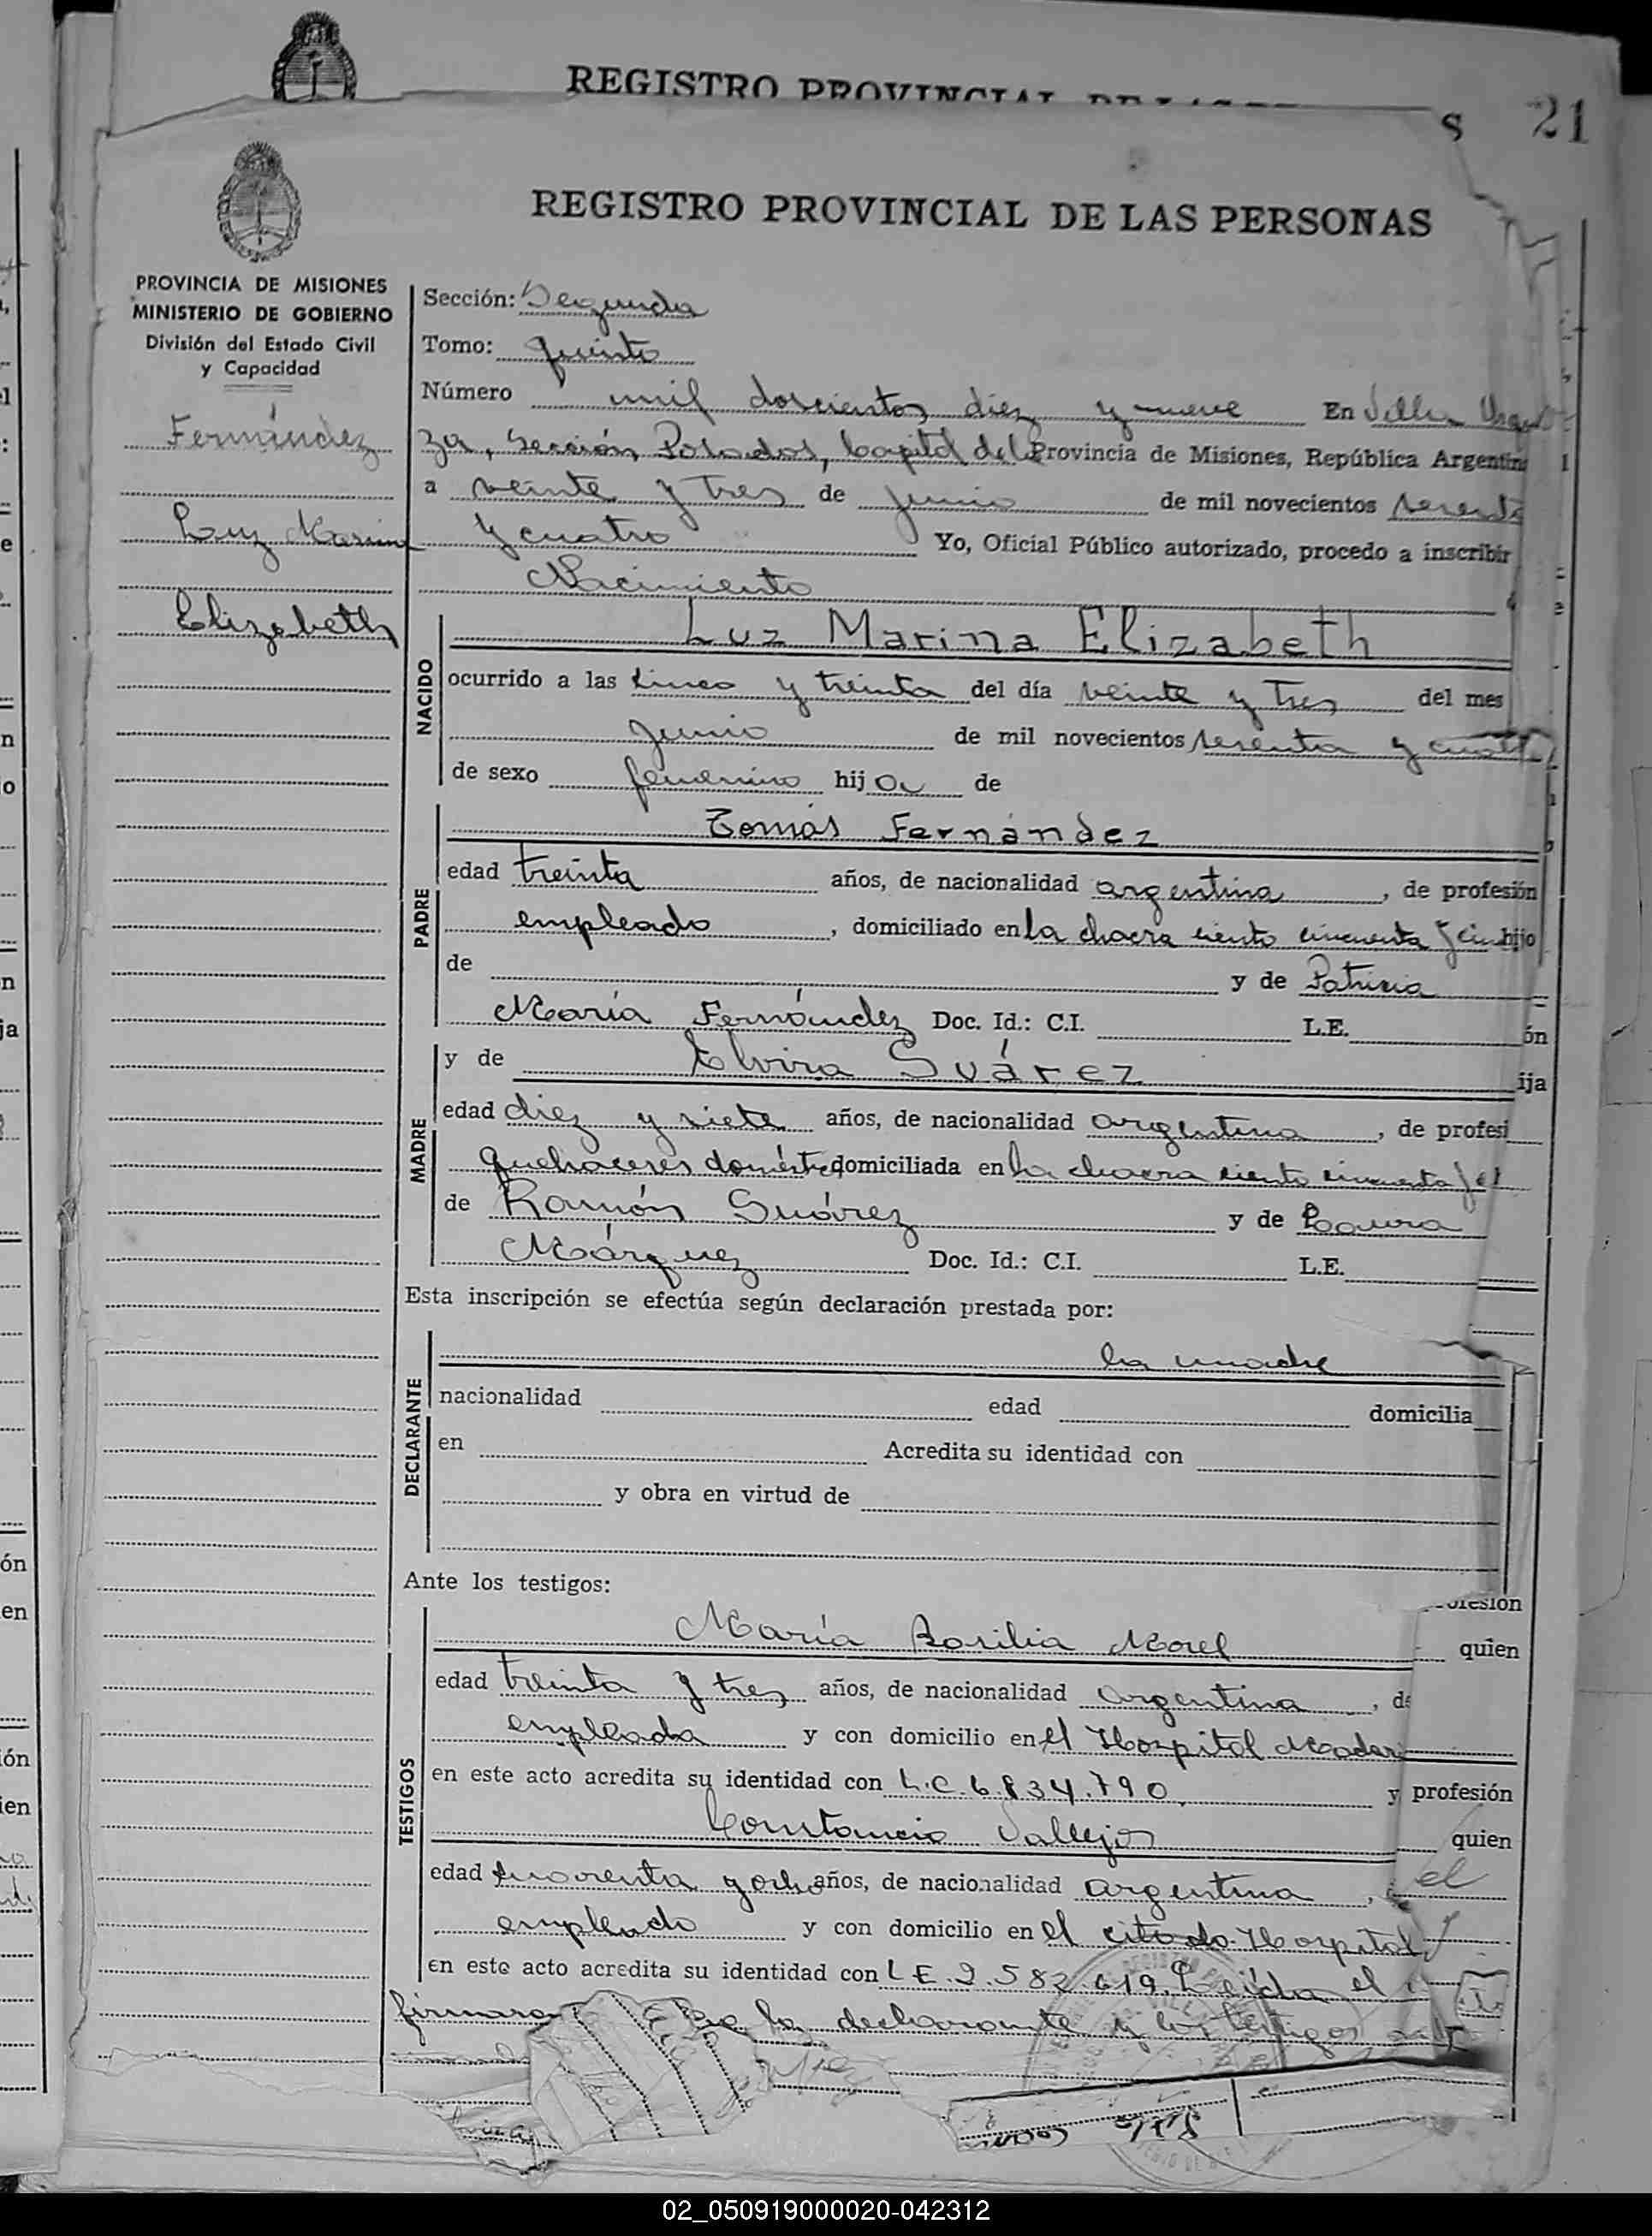 REGISTRO PROVINCIAL
S 21
REGISTRO PROVINCIAL DE LAS PERSONAS
PROVINCIA DE MISIONES
MINISTERIO DE GOBIERNO
División del Estado Civil
y Capacidad
Fernández
Luz Marina
Elizabeth
Sección: Segunda
Tomo: quinto
Número mil doscientos diez y nueve En Villa Urqui
za, Sección Posadas, Capital de la Provincia de Misiones, República Argentina
a veinte y tres de junio de mil novecientos sesenta
y cuatro Yo, Oficial Público autorizado, procedo a inscribir
Nacimiento
NACIDO
Luz Marina Elizabeth
ocurrido a las cinco y treinta del día veinte y tres del mes
junio de mil novecientos sesenta y cuatro
de sexo femenino hija de
PADRE
Tomás Fernández
edad treinta años, de nacionalidad argentina, de profesión
empleado, domiciliado en la chacra ciento cincuenta y cin hijo
de y de Patricia
María Fernández Doc. Id.: C.I. L.E. ón
MADRE
y de Elvira Suárez ija
edad diez y siete años, de nacionalidad argentina, de profesi
quehaceres domésticos domiciliada en la chacra ciento cincuenta y
de Ramón Suárez y de Laura
Márquez Doc. Id.: C.I. L.E.
Esta inscripción se efectúa según declaración prestada por:
DECLARANTE
la madre
nacionalidad edad domicilia
en Acredita su identidad con
y obra en virtud de
Ante los testigos:
TESTIGOS
María Basilia Morel quien
edad treinta y tres años, de nacionalidad argentina, de
empleada y con domicilio en el Hospital Madar
en este acto acredita su identidad con L.C. 6.834.790 y profesión
Constancio Vallejos quien
edad cuarenta y ocho años, de nacionalidad argentina, el
empleado y con domicilio en el citado Hospital y
en este acto acredita su identidad con L E. 2.582.619. Leída el
firmaron la declarante y los testigos
02_050919000020-042312